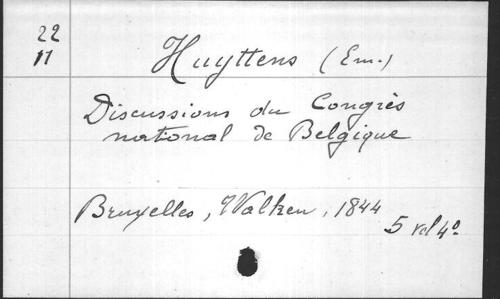 22
11
Huyttens (Em.)
Discussions du Congrès
national de Belgique
Bruxelles, Walhen, 1844
5 vol 4º